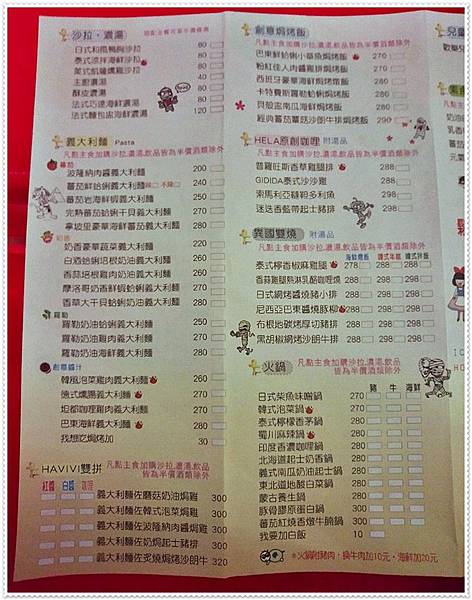 沙拉・濃湯
日式和風鴨胸沙拉 80
泰式涼拌海鮮沙拉 80
美式凱薩燻雞沙拉 80
主廚濃湯 40
酥皮濃湯 80
法式巧達海鮮濃湯 120
法式麵包盅海鮮濃湯 120
義大利麵 Pasta
凡點主食加購沙拉,濃湯,飲品皆為半價酒類除外
蕃茄
波隆納肉醬義大利麵 200
蕃茄鮮蛤蜊義大利麵 240
蕃茄岩海鮮蝦義大利麵 250
完熟蕃茄蛤蜊干貝義大利麵 250
拿坡里豪華海鮮蕃茄義大利麵 280
奶香
奶香豪華蔬菜義大利麵 220
白酒蛤蜊培根奶油義大利麵 260
香蒜培根雞肉奶油義大利麵 260
摩洛哥奶香鮮蝦蛤蜊義大利麵 260
香草大干貝蛤蜊奶油義大利麵 280
羅勒
羅勒奶油蛤蜊義大利麵 240
羅勒奶油雞肉義大利麵 260
羅勒奶油海鮮義大利麵 280
創意醬汁
韓風泡菜雞肉義大利麵 260
德式燻腸義大利麵 260
坦都咖哩雞肉義大利麵 260
巴東海鮮蛤蜊義大利麵 280
我想吃焗烤加 30
HAVIVI雙拼 凡點主食加購沙拉,濃湯,飲品皆為半價酒類除外
紅醬 白醬 咖哩
義大利麵佐蘑菇奶油焗雞 300
義大利麵佐韓式泡菜焗雞 300
義大利麵佐波隆納肉醬焗雞 300
義大利麵佐奶焗起士豬排 300
義大利麵佐炙燒焗烤沙朗牛 320
創意焗烤飯
凡點主食加購沙拉,濃湯,飲品皆為半價酒類除外
巴東鮮蛤蜊小章魚焗烤飯 270
粉紅佳人肉醬雞排焗烤飯 290
西班牙豪華海鮮焗烤飯 290
卡特費斯羅勒蛤蜊焗烤飯 290
貝殼盅南瓜海鮮焗烤飯 290
經典蕃茄蘑菇沙朗牛排焗烤飯 290
HELA原創咖哩 附湯品
凡點主食加購沙拉,濃湯,飲品皆為半價酒類除外
普羅旺斯香草雞腿排 288
GIDIDA泰式沙沙雞 288
索馬利亞糖親多利魚 298
迷迭香藍帶起士豬排 298
異國雙燒 附湯品
凡點主食加購沙拉,濃湯,飲品皆為半價酒類除外
泰式檸香椒麻雞腿 278 288 288
香蒜雞腿熟淋乳酪咖哩燒 288 288 288
日式網烤醬燒豬小排 288 288 288
尼西亞巴東醬燒豚柳 288 288 288
布根地碳烤厚切豬排 288 288 288
黑胡椒網烤沙朗牛排 288 288 288
火鍋 凡點主食加購沙拉,濃湯,飲品
皆為半價酒類除外
豬 牛 海鮮
日式柴魚味噌鍋 270
韓式泡菜鍋 270
泰式檸檬香茅鍋 270
蜀川麻辣鍋 270
印度香濃咖哩鍋 270
北海道起士奶香鍋 270
義式南瓜奶油起士鍋 270
東北道地酸白菜鍋 270
蒙古養生鍋 270
豚骨膠原蛋白鍋 270
蕃茄紅燒香燉牛腩鍋 300
我要加白飯 10
＊火鍋附豬肉,換牛肉加10元,海鮮加20元